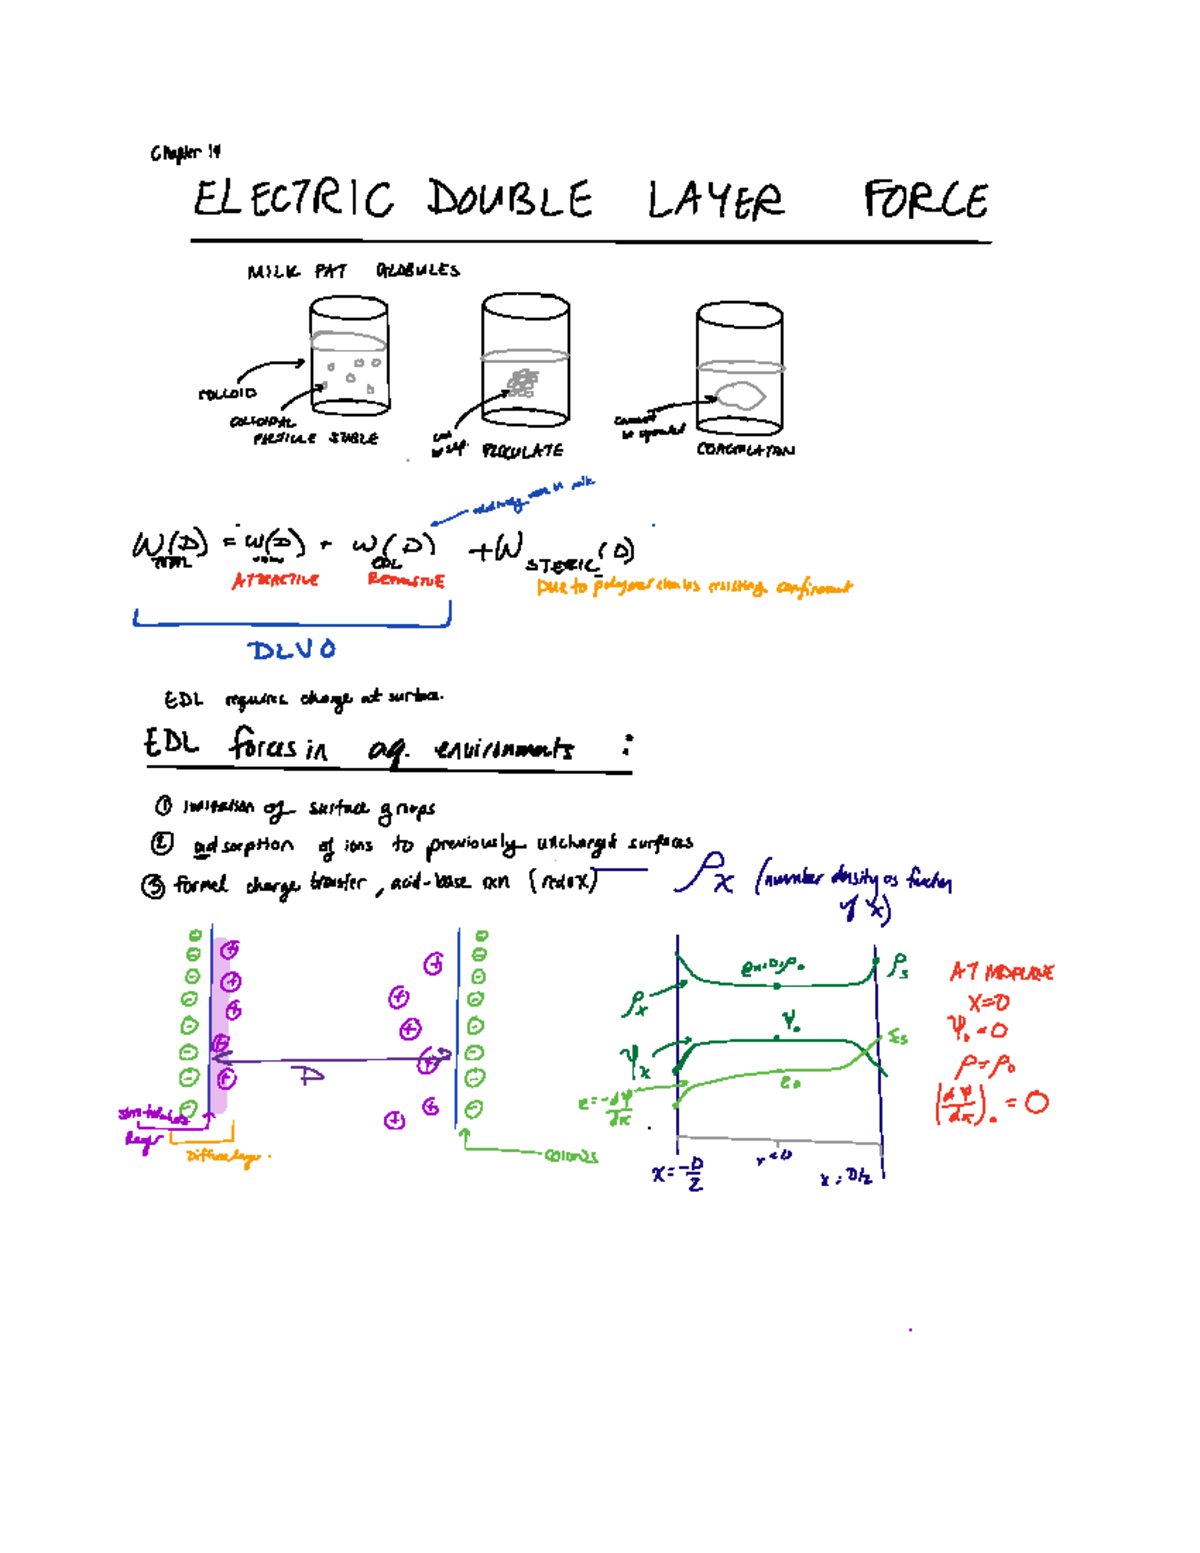 Chapter 14
ELECTRIC DOUBLE LAYER FORCE
MILK FAT GLOBULES
COLLOID
COLLOIDAL
PARTICLE STABLE
FLOCULATE
COAGULATAN
relatively
W(D) = W(D) + W(D) + W STERIC (D)
EDL
ATTRACTIVE REPULSIVE
DUE to polymer chains resisting confinement
DLVO
EDL requires charge at surface.
EDL forces in aq. environments :
① of surface groups
② adsorption of ions to previously uncharged surfaces
③ formal charge transfer, acid-base rxn (redox)
ρx (number density as function
of x)
D
layer
Diffuse layer
COIONS
ρs
ρx
ψ₀
ψx
Es
E₀
E = -dψ/dx
x = -D/2
x = 0
x = D/2
AT MIDPLANE
X=0
ψ₀ = 0
ρ = ρ₀
(dψ/dx)₀ = 0